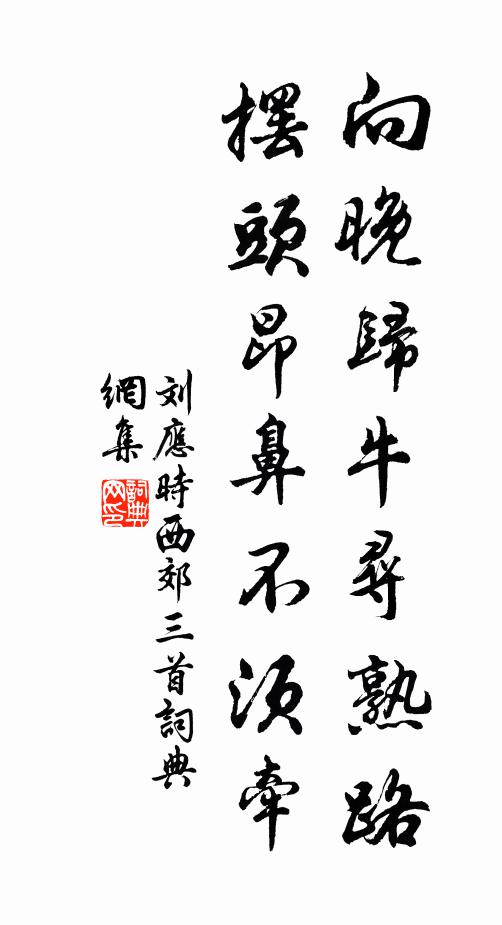 向晚歸牛尋熟路
擺頭昂鼻不須牽
刘應時西郊三首詞典
網集
詞典
网印